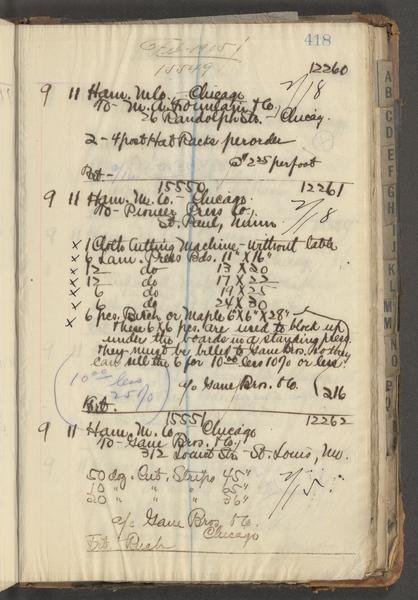 418
Feb - 1915
15549
12260
9 11 Ham. M. Co. - Chicago
To - M. A. Fountain & Co.
26 Randolph St. - Chicag.
2/18
2 - 4 post Hat Racks per order
@ 2 25 per foot
Frt. -
15550 12261
9 11 Ham. M. Co. - Chicago.
To - Pioneer Press Co.
St. Paul, Minn
2/18
x 1 Cloth Cutting Machine - without table
x 6 Lam. Press Bds. 11" X 16"
x 12 do 13 X 20
x 12 do 17 X 22
x 6 do
x 6 do 24 X 30
x 6 pcs. Birch or Maple 6 X 6 X 28"
These 6 X 6 pcs. are used to block up
under the boards in a standing press.
They must be billed to Gane Bros. so they
can sell the 6 for 10 00 less 10% or less.
10 00 less
25%
c/o Gane Bros. & Co. 216
Frt.
15551 12262
9 11 Ham. M. Co. - Chicago
To - Gane Bros. & Co.
312 Locust St. - St. Louis, Mo.
50 dz. Cut. Strips 45"
10 " " "
20 " " " 36"
c/o Gane Bros. & Co.
Chicago
Frt. Rush
A
B
C
D
E
F
G
H
I
J
K
L
M
M
N
O
P
Q